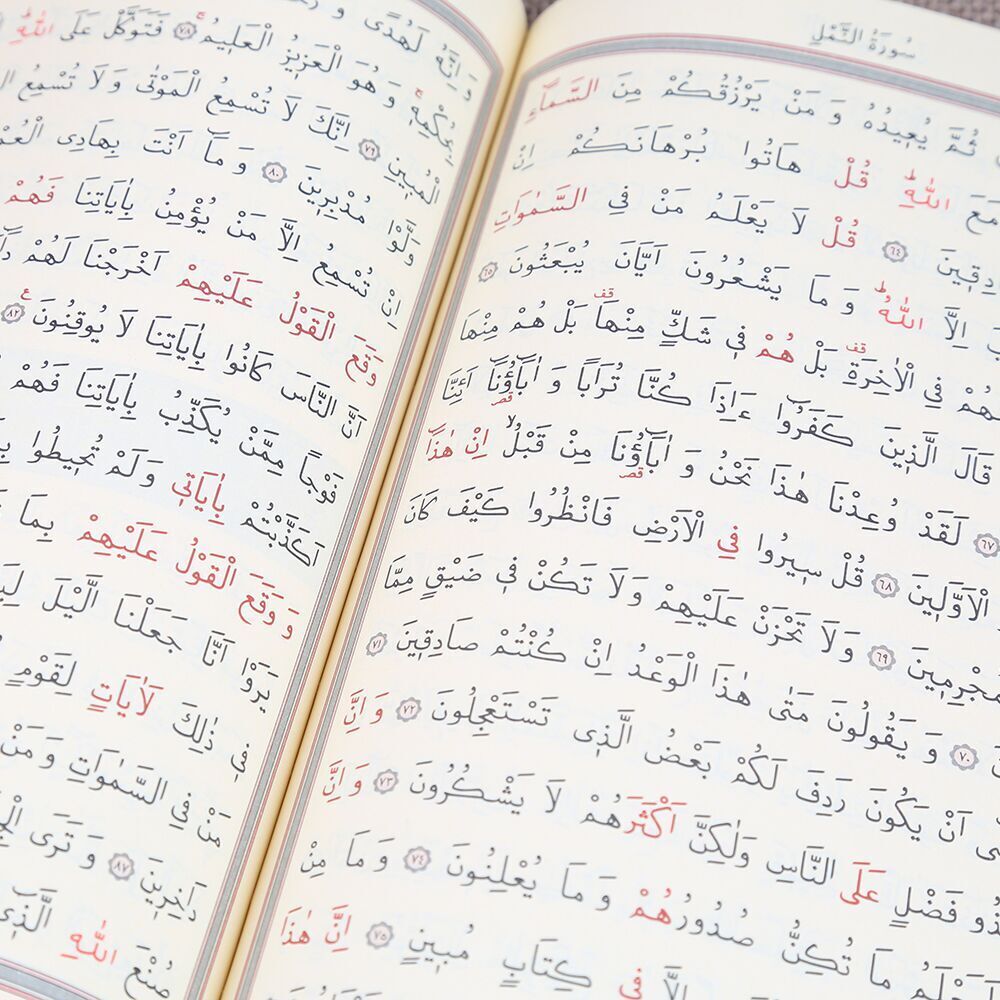 سُورَةُ النَّمْلِ
ثُمَّ يُعِيدُهُ وَ مَنْ يَرْزُقُكُمْ مِنَ السَّمَٓاءِ
اللّٰهِۜ قُلْ هَاتُوا بُرْهَانَكُمْ اِنْ
﴿٦٤﴾ قُلْ لَا يَعْلَمُ مَنْ فِي السَّمٰوَاتِ
اِلَّا اللّٰهُۜ وَ مَا يَشْعُرُونَ اَيَّانَ يُبْعَثُونَ ﴿٦٥﴾
فِي الْاٰخِرَةِ بَلْ هُمْ فِي شَكٍّ مِنْهَا بَلْ هُمْ مِنْهَا
قَالَ الَّذِينَ كَفَرُٓوا ءَاِذَا كُنَّا تُرَاباً وَ اٰبَٓاؤُنَٓا اَئِنَّا
﴿٦٧﴾ لَقَدْ وُعِدْنَا هٰذَا نَحْنُ وَ اٰبَٓاؤُنَا مِنْ قَبْلُۙ اِنْ هٰذَٓا
الْاَوَّلِينَ ﴿٦٨﴾ قُلْ سِيرُوا فِي الْاَرْضِ فَانْظُرُوا كَيْفَ كَانَ
﴿٦٩﴾ وَلَا تَحْزَنْ عَلَيْهِمْ وَلَا تَكُنْ فِي ضَيْقٍ مِمَّا
﴿٧٠﴾ وَ يَقُولُونَ مَتٰى هٰذَا الْوَعْدُ اِنْ كُنْتُمْ صَادِقِينَ ﴿٧١﴾
اَنْ يَكُونَ رَدِفَ لَكُمْ بَعْضُ الَّذِي تَسْتَعْجِلُونَ ﴿٧٢﴾ وَ اِنَّ
فَضْلٍ عَلَى النَّاسِ وَلٰكِنَّ اَكْثَرَهُمْ لَا يَشْكُرُونَ ﴿٧٣﴾ وَ اِنَّ
مَا تُكِنُّ صُدُورُهُمْ وَ مَا يُعْلِنُونَ ﴿٧٤﴾ وَ مَا مِنْ
اِلَّا فِي كِتَابٍ مُبِينٍ ﴿٧٥﴾ اِنَّ هٰذَا
وَ اِنَّهُ لَهُدًى وَ
بِحُكْمِهِ وَ هُوَ الْعَزِيزُ الْعَلِيمُ ﴿٧٨﴾ فَتَوَكَّلْ عَلَى اللّٰهِ
الْمُبِينِ ﴿٧٩﴾ اِنَّكَ لَا تُسْمِعُ الْمَوْتٰى وَ لَا تُسْمِعُ
وَلَّوْا مُدْبِرِينَ ﴿٨٠﴾ وَ مَٓا اَنْتَ بِهَادِي
اِنْ تُسْمِعُ اِلَّا مَنْ يُؤْمِنُ بِاٰيَاتِنَا فَهُمْ
وَقَعَ الْقَوْلُ عَلَيْهِمْ اَخْرَجْنَا لَهُمْ
اَنَّ النَّاسَ كَانُوا بِاٰيَاتِنَا لَا يُوقِنُونَ ﴿٨٢﴾
فَوْجاً مِمَّنْ يُكَذِّبُ بِاٰيَاتِنَا فَهُمْ
اَكَذَّبْتُمْ بِاٰيَاتِي وَلَمْ تُحِيطُوا
وَ وَقَعَ الْقَوْلُ عَلَيْهِمْ بِمَا
يَرَوْا اَنَّا جَعَلْنَا الَّيْلَ
فِي ذٰلِكَ لَاٰيَاتٍ لِقَوْمٍ
مَنْ فِي السَّمٰوَاتِ وَ مَنْ
دَاخِرِينَ ﴿٨٧﴾ وَ تَرَى
صُنْعَ اللّٰهِ الَّذِٓي